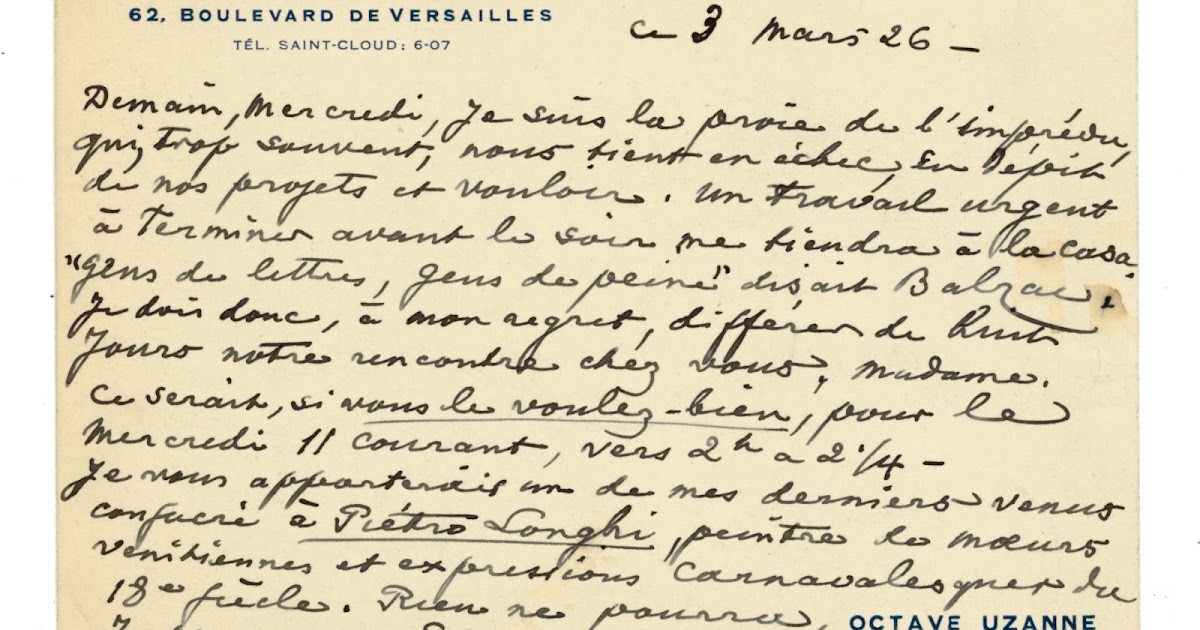 62, BOULEVARD DE VERSAILLES
TÉL. SAINT-CLOUD: 6-07
ce 3 Mars 26 —
Demain, Mercredi, Je suis la proie de l'imprévu,
qui, trop souvent, nous tient en échec, En Dépit
de nos projets et vouloir. Un travail urgent
à Terminer avant le soir me tiendra à la casa.
"gens de lettres, gens de peine" disait Balzac.
Je dois donc, à mon regret, différer de huit
Jours notre rencontre chez vous, madame.
Ce serait, si vous le voulez-bien, pour le
Mercredi 11 courant, vers 2h à 2 1/4 —
Je vous apporterais un de mes derniers venus
consacré à Piétro Longhi, peintre de mœurs
vénitiennes et expressions carnavalesques du
18e siècle. Rien ne pourra,
OCTAVE UZANNE